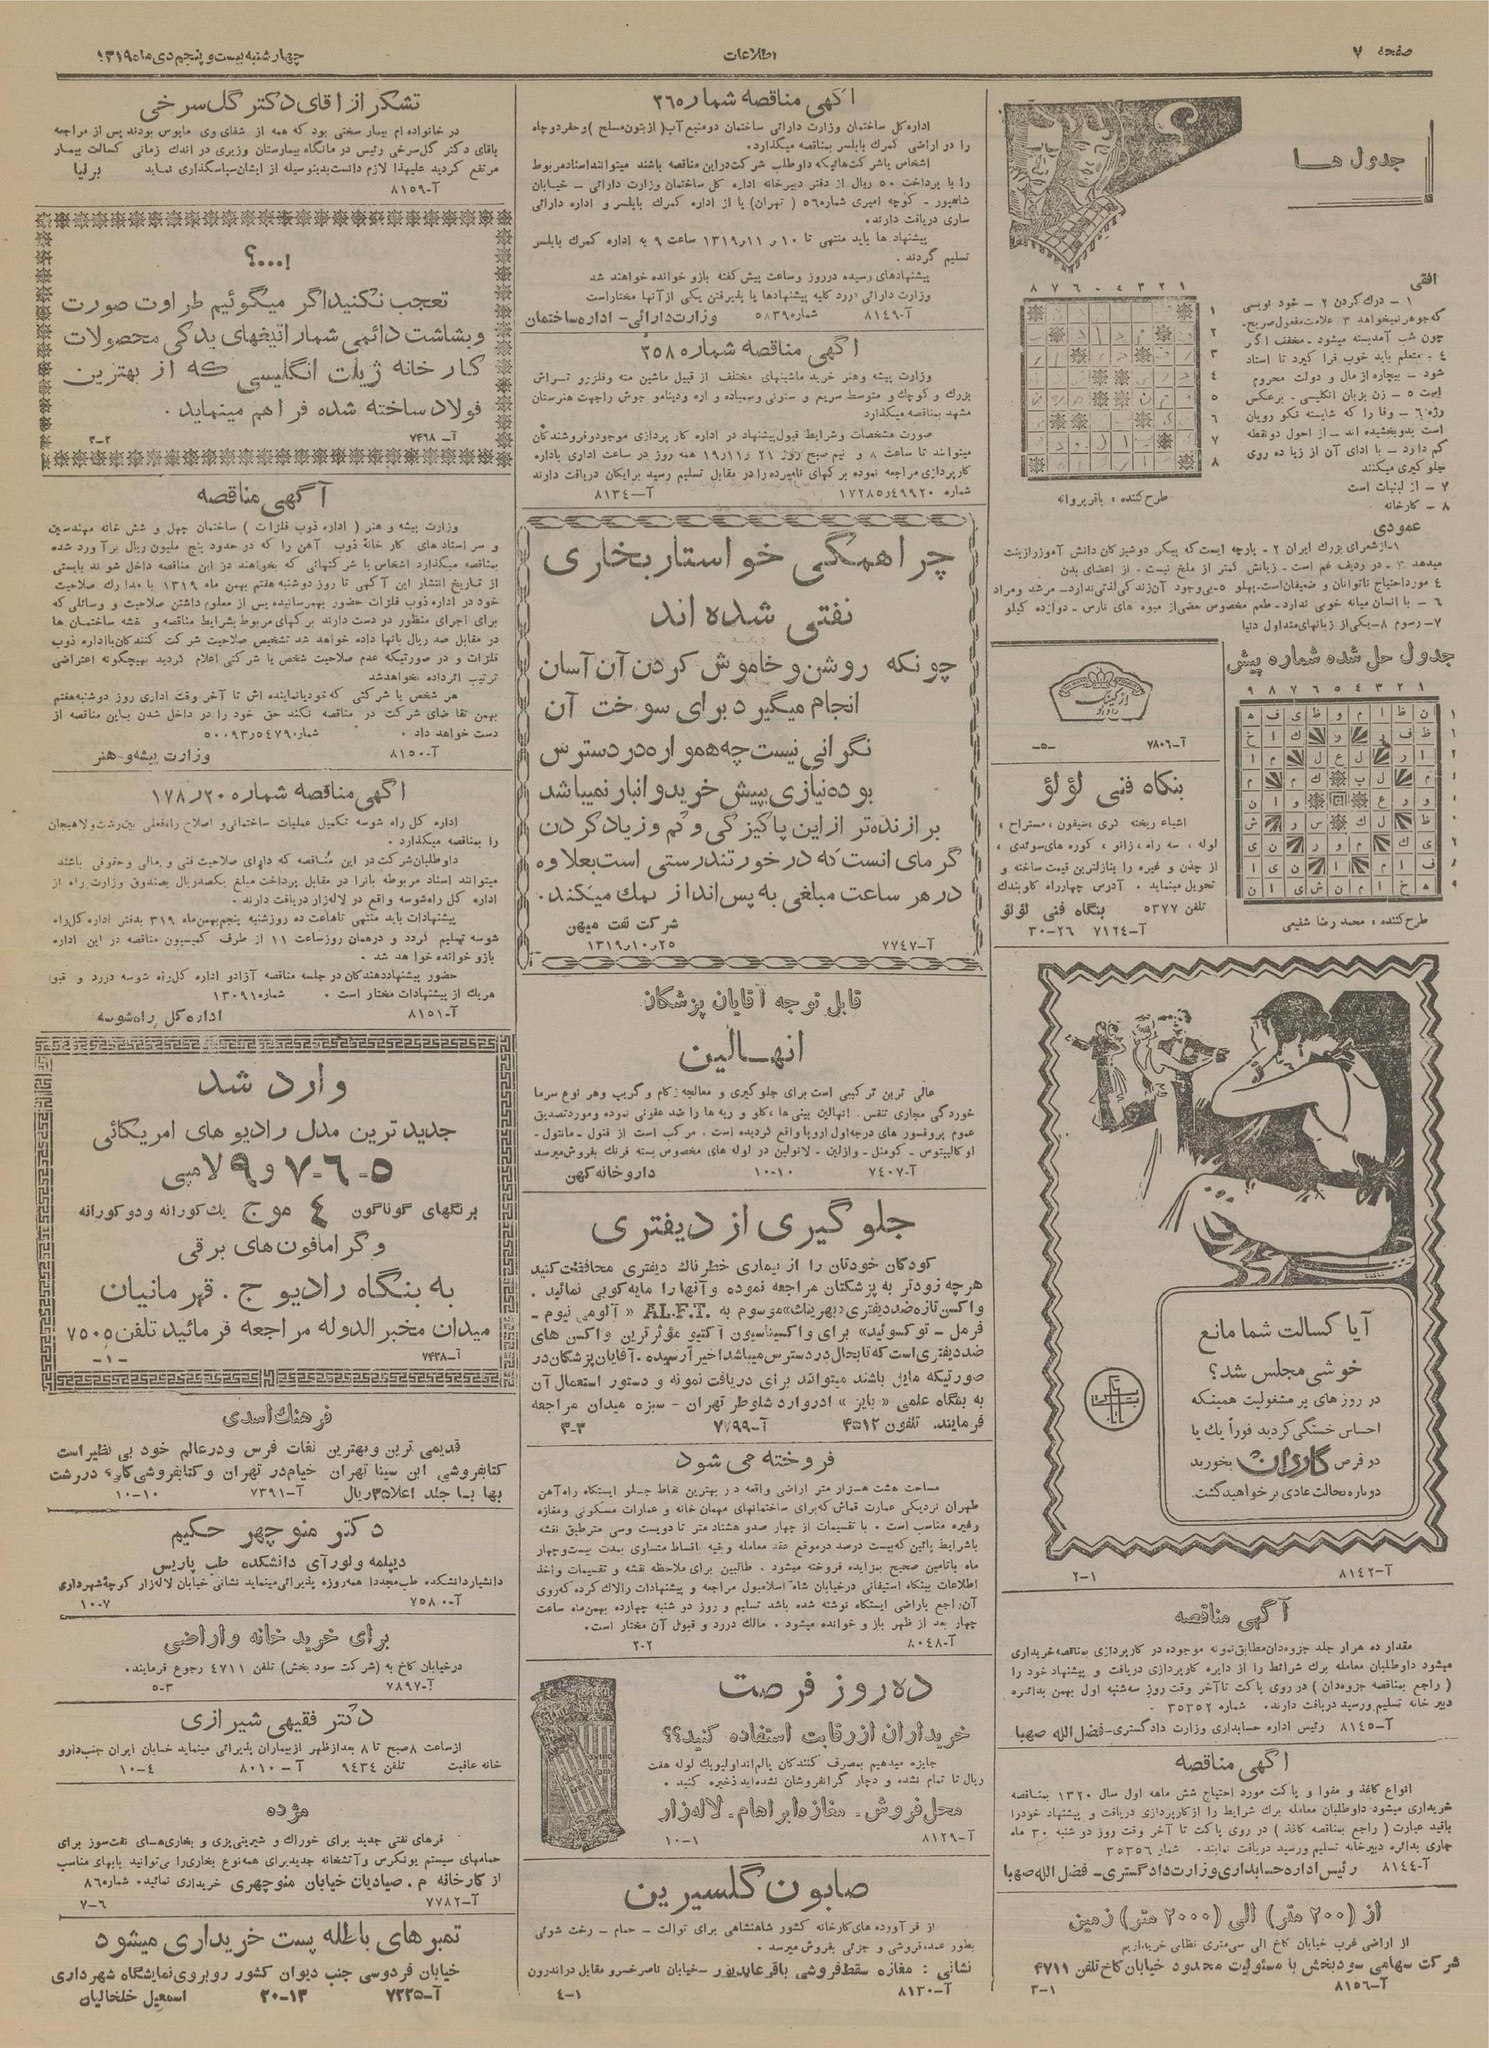 صفحه ۷
اطلاعات
چهارشنبه بیست و پنجم دی ماه ۱۳۱۹
جدول ها
افقی
۱ – درك كردن ۲ – خود نویسی
که جوهر نمیخواهد ۳ علامت مفعول صریح-
چون شب آمد بسته میشود – مخفف اگر
۴ – متعلم باید خوب فرا گیرد تا استاد
شود – بیچاره از مال و دولت محروم
است ۵ – زن بزبان انگلیسی – برعکس
۶ – وفا را که شایسته نکو رویان
است بدو بخشیده اند – از احول دو نقطه
کم دارد – با ادای آن از زیاده روی
جلوگیری میکنند
۷ – از لبنیات است
۸ – کارخانه
طرح کننده : باقر پروانه
عمودی
۱-از شعرای بزرك ایران ۲ – پارچه ایست که پیکر دوشیزکان دانش آموز را زینت
میدهد ۳ – در ردیف غم است – زیانش کمتر از ملخ نیست – از اعضای بدن
۴ مورد احتیاج ناتوانان و ضعیفان است-پهلو ۵-بی وجود آن زندگی لذتی ندارد- مرشد ومراد
۶ – با انسان میانه خوبی ندارد- طعم مخصوص بعضی از میوه های نارس – دوازده کیلو
۷- رسوم ۸-یکی از زبانهای متداول دنیا
جدول حل شده شماره پیش
طرح کننده : محمد رضا شفیعی
آ-۷۸۰۶
-۵-
بنگاه فنی لؤلؤ
اشیاء ریخته گری، سیفون ، مستراح ،
لوله ، سه راه ، زانو ، کوره های سوئدی ،
از چدن و غیره را بنازلترین قیمت ساخته و
تحویل مینماید . آدرس چهارراه کاوبندك
تلفن ۵۳۷۷ بنگاه فنی لؤلؤ
آ-۷۱۲۴ ۲۶-۳۰
آیا کسالت شما مانع
خوشی مجلس شد؟
در روز های پر مشغولیت همینکه
احساس خستگی کردید فوراً یك یا
دو قرص گاردان بخورید
دوباره بحالت عادی برخواهید گشت.
آ-۸۱۴۲ ۱-۲
آگهی مناقصه
مقدار ده هزار جلد جزوه دان مطابق نمونه موجوده در کارپردازی بمناقصه خریداری
میشود داوطلبان معامله برك شرائط را از دایره کارپردازی دریافت و پیشنهاد خود را
( راجع بمناقصه جزوه دان ) در روی پاکت تا آخر وقت روز سه شنبه اول بهمن بدائره
دبیر خانه تسلیم ورسید دریافت دارند. شماره ۳۵۳۵۲
آ-۸۱۴۵ رئیس اداره حسابداری وزارت دادگستری-فضل الله صهبا
آگهی مناقصه
انواع کاغذ و مقوا و پاکت مورد احتیاج شش ماهه اول سال ۱۳۲۰ بمناقصه
خریداری میشود داوطلبان معامله برك شرایط را از کارپردازی دریافت و پیشنهاد خود را
باقید عبارت ( راجع بمناقصه کاغذ ) در روی پاکت تا آخر وقت روز دو شنبه ۳۰ ماه
جاری بدائره دبیرخانه تسلیم ورسید دریافت نمایند. شماره ۳۵۳۵۶
آ-۸۱۴۴ رئیس اداره حسابداری وزارت دادگستری- فضل الله صهبا
از (۲۰۰ متر) الی (۲۰۰۰ متر) زمین
از اراضی غرب خیابان کاخ الی سی متری نظامی خریداریم
شرکت سهامی سودبخش با مسئولیت محدود خیابان کاخ تلفن ۴۷۱۱
آ-۸۱۵۶ ۱-۳
آگهی مناقصه شماره ۳۶۵
اداره کل ساختمان وزارت دارائی ساختمان دو منبع آب( از بتون مسلح )وحفر دو چاه
را در اراضی گمرك بابلسر بمناقصه میگذارد.
اشخاص یا شرکت هائیکه داوطلب شرکت در این مناقصه باشند میتوانند اسناد مربوط
را با پرداخت ۵۰ ریال از دفتر دبیرخانه اداره کل ساختمان وزارت دارائی – خیابان
شاهپور – کوچه امیری شماره ۵۶ ( تهران) یا از اداره گمرك بابلسر و اداره دارائی
ساری دریافت دارند.
پیشنهاد ها باید منتهی تا ۱۰ ر ۱۱ر۱۳۱۹ ساعت ۹ به اداره گمرك بابلسر
تسلیم گردند .
پیشنهادهای رسیده در روز وساعت پیش گفته باز و خوانده خواهند شد
وزارت دارائی در رد کلیه پیشنهادها یا پذیرفتن یکی از آنها مختار است
آ-۸۱۴۹ شماره ۵۸۳۹۰ وزارت دارائی- اداره ساختمان
آگهی مناقصه شماره ۳۵۸
وزارت پیشه وهنر خرید ماشینهای مختلف از قبیل ماشین مته وفلز رو تراش
بزرك و کوچك و متوسط سریم و ستونی وسمباده و اره ودینامو جوش راجهت هنرستان
مشهد بمناقصه میگذارد
صورت مشخصات وشرایط قبول پیشنهاد در اداره کار پردازی موجود وفروشندگان
میتوانند تا ساعت ۸ و نیم صبح روز ۲۱ ر۱۱ر۱۹ همه روز در ساعت اداری باداره
کارپردازی مراجعه نموده برگهای نامبرده را در مقابل تسلیم رسید برایگان دریافت دارند
شماره ۱۷۲۸۵ر۴۹۹۲۰ آ-۸۱۳۴
چرا همگی خواستار بخاری
نفتی شده اند
چونکه روشن و خاموش کردن آن آسان
انجام میگیرد برای سوخت آن
نگرانی نیست چه همواره در دسترس
بوده نیازی بپیش خرید و انبار نمیباشد
برازنده تر از این پاکیزگی و کم و زیاد کردن
گرمای انست که در خور تندرستی است بعلاوه
در هر ساعت مبلغی به پس انداز کمك میکند.
شرکت نفت میهن
آ-۷۷۴۷ ۱۳۱۹ر۱۰ر۲۵
قابل توجه آقایان پزشکان
انهالین
عالی ترین ترکیبی است برای جلوگیری و معالجه زکام و گریپ وهر نوع سرما
خوردگی مجاری تنفس. انهالین بینی ها، گلو و ریه ها را ضد عفونی نموده ومورد تصدیق
عموم پروفسور های درجه اول اروپا واقع گردیده است . مرکب است از فنول – مانتول –
اوکالیپتوس – گومنل – وازلین – لانولین در لوله های مخصوص بسته فرنك بفروش میرسد
آ-۷۴۰۷ ۱۰-۱۰ داروخانه کهن
جلوگیری از دیفتری
کودکان خودتان را از بیماری خطرناك دیفتری محافظت کنید
هرچه زودتر به پزشکتان مراجعه نموده وآنها را مایه کوبی نمائید .
واکسن تازه ضد دیفتری «بهرینك» موسوم به AL.F.T. « آلومی نیوم –
فرمل – توکسوئید» برای واکسیناسیون آکتیو مؤثرترین واکسن های
ضد دیفتری است که تا بحال در دسترس میباشد اخیراً رسیده . آقایان پزشکان در
صورتیکه مایل باشند میتوانند برای دریافت نمونه و دستور استعمال آن
به بنگاه علمی « بایر » ادروارد شلوطر تهران – سبزه میدان مراجعه
فرمایند. تلفون ۴۵۱۲ آ-۷۷۹۹ ۳-۳
فروخته می شود
مساحت هشت هزار متر اراضی واقعه در بهترین نقاط جلو ایستگاه راه آهن
طهران نزدیکی عمارت قماش که برای ساختمانهای مهمان خانه و عمارات مسکونی ومغازه
وغیره مناسب است . با تقسیمات از چهار صدو هشتاد متر تا دویست وسی متر طبق نقشه
باشرایط پائین که بیست درصد در موقع عقد معامله وبقیه باقساط متساوی بمدت بیست وچهار
ماه باتامین صحیح بمزایده فروخته میشود . طالبین برای ملاحظه نقشه و تقسیمات واخذ
اطلاعات ببنگاه استیفانی در خیابان شاه اسلامبول مراجعه و پیشنهادات رالاك کرده که روی
آن راجع باراضی ایستگاه نوشته شده باشد تسلیم و روز دو شنبه چهارده بهمن ماه ساعت
چهار بعد از ظهر باز و خوانده میشود . مالك در رد و قبول آن مختار است.
آ-۸۰۴۸ ۲-۲
ده روز فرصت
خریداران از رقابت استفاده کنید؟؟
جایزه میدهیم بمصرف کنندگان یالم انداولیویك لوله هفت
ریال تا تمام نشده و دچار گرانفروشان نشده اید ذخیره کنید .
محل فروش- مغازه ابراهام- لاله زار
آ-۸۱۲۹ ۱-۱۰
صابون گلسیرین
از فرآورده های کارخانه کشور شاهنشاهی برای توالت – حمام – رخت شوئی
بطور عمده فروشی و جزئی بفروش میرسد .
نشانی : مغازه سقط فروشی باقر عابدپور –خیابان ناصر خسرو مقابل در اندرون
آ-۸۱۳۰ ۱-۴
تشکر از اقای دکتر گل سرخی
در خانواده ام بیمار سختی بود که همه از شفای وی مایوس بودند پس از مراجعه
باقای دکتر گل سرخی رئیس درمانگاه بیمارستان وزیری در اندك زمانی کسالت بیمار
مرتفع گردید علیهذا لازم دانست بدینوسیله از ایشان سپاسگذاری نماید برلیا
آ-۸۱۵۹
!...؟
تعجب نکنید اگر میگوئیم طراوت صورت
و بشاشت دائمی شما را تیغهای یدکی محصولات
کارخانه ژیلت انگلیسی که از بهترین
فولاد ساخته شده فراهم مینماید.
آ-۷۴۶۸ ۲-۳
آگهی مناقصه
وزارت پیشه و هنر ( اداره ذوب فلزات ) ساختمان چهل و شش خانه مهندسین
و سر استاد های کار خانة ذوب آهن را که در حدود پنج ملیون ریال برآورد شده
بمناقصه میگذارد اشخاص یا شرکتهائی که بخواهند در این مناقصه داخل شوند بایستی
از تاریخ انتشار این آگهی تا روز دوشنبه هفتم بهمن ماه ۱۳۱۹ با مدارك صلاحیت
خود در اداره ذوب فلزات حضور بهمرسانیده پس از معلوم داشتن صلاحیت و وسائلی که
برای اجرای منظور در دست دارند برگهای مربوط بشرایط مناقصه و نقشه ساختمان ها
در مقابل صد ریال بانها داده خواهد شد تشخیص صلاحیت شرکت کنندگان بااداره ذوب
فلزات و در صورتیکه عدم صلاحیت شخص یا شرکتی اعلام گردید بهیچگونه اعتراضی
ترتیب اثر داده نخواهد شد
هر شخص یا شرکتی که خود یا نماینده اش تا آخر وقت اداری روز دوشنبه هفتم
بهمن تقاضای شرکت در مناقصه نکند حق خود را در داخل شدن باین مناقصه از
دست خواهد داد . شماره ۵۴۷۹ر۵۰۰۹۳
آ-۸۱۵۰ وزارت پیشه و هنر
آگهی مناقصه شماره ۲۰ر۱۷۸
اداره کل راه شوسه تکمیل عملیات ساختمانی و اصلاح راه فعلی بین رشت ولاهیجان
را بمناقصه میگذارد .
داوطلبان شرکت در این مناقصه که دارای صلاحیت فنی و مالی وحقوقی باشند
میتوانند اسناد مربوطه بانرا در مقابل پرداخت مبلغ یکصد ریال بصندوق وزارت راه از
اداره کل راه شوسه واقع در لاله زار دریافت دارند .
پیشنهادات باید منتهی تا ساعت ده روز شنبه پنجم بهمن ماه ۳۱۹ بدفتر اداره کل راه
شوسه تسلیم گردد و در همان روز ساعت ۱۱ از طرف کمیسیون مناقصه در این اداره
باز و خوانده خواهد شد .
حضور پیشنهاد دهندگان در جلسه مناقصه آزاد و اداره کل راه شوسه در رد و قبول
هریك از پیشنهادات مختار است . شماره ۱۳۰۹۱
آ-۸۱۵۱ اداره کل راه شوسه
وارد شد
جدید ترین مدل رادیو های امریکائی
۵-۶-۷ و ۹ لامپی
برنگهای گوناگون ۴ موج یك کورانه و دو کورانه
و گرامافون های برقی
به بنگاه رادیو ج . قهرمانیان
میدان مخبر الدوله مراجعه فرمائید تلفن ۷۵۰۵
آ-۷۴۳۸ -۱-
فرهنك اسدی
قدیمی ترین و بهترین لغات فرس و در عالم خود بی نظیر است
کتابفروشی ابن سینا تهران خیام در تهران و کتابفروشی در رشت
بها با جلد اعلا ۳۵ ریال آ-۷۳۹۱ ۱۰-۱۰
دکتر منوچهر حکیم
دیپلمه و لورآی دانشکده طب پاریس
دانشیار دانشکده طب مجدداً همه روزه پذیرائی مینماید نشانی خیابان لاله زار کوچه شهرداری
آ-۷۵۸۰ ۷-۱۰
برای خرید خانه و اراضی
در خیابان کاخ به (شرکت سود بخش) تلفن ۴۷۱۱ رجوع فرمایند.
آ-۷۸۹۷ ۳-۵
دکتر فقیهی شیرازی
از ساعت ۸ صبح تا ۸ بعد از ظهر از بیماران پذیرائی مینماید خیابان ایران جنب دارو
خانه عافیت تلفن ۹۴۳۴ آ-۸۰۱۰ ۴-۱۰
مژده
فرهای نفتی جدید برای خوراك و شیرینی پزی و بخاری های نفت سوز برای
حمامهای سیستم یونکرس وآتشخانه جدید برای همه نوع بخاری را می توانید ببهای مناسب
از کارخانه م . صیادیان خیابان منوچهری خریداری نمائید. شماره ۸۶
آ-۷۷۸۲ ۶-۷
تمبر های باطله پست خریداری میشود
خیابان فردوسی جنب دیوان کشور روبروی نمایشگاه شهرداری
آ-۷۲۲۵ ۱۳-۲۰ اسمعیل خلخالیان